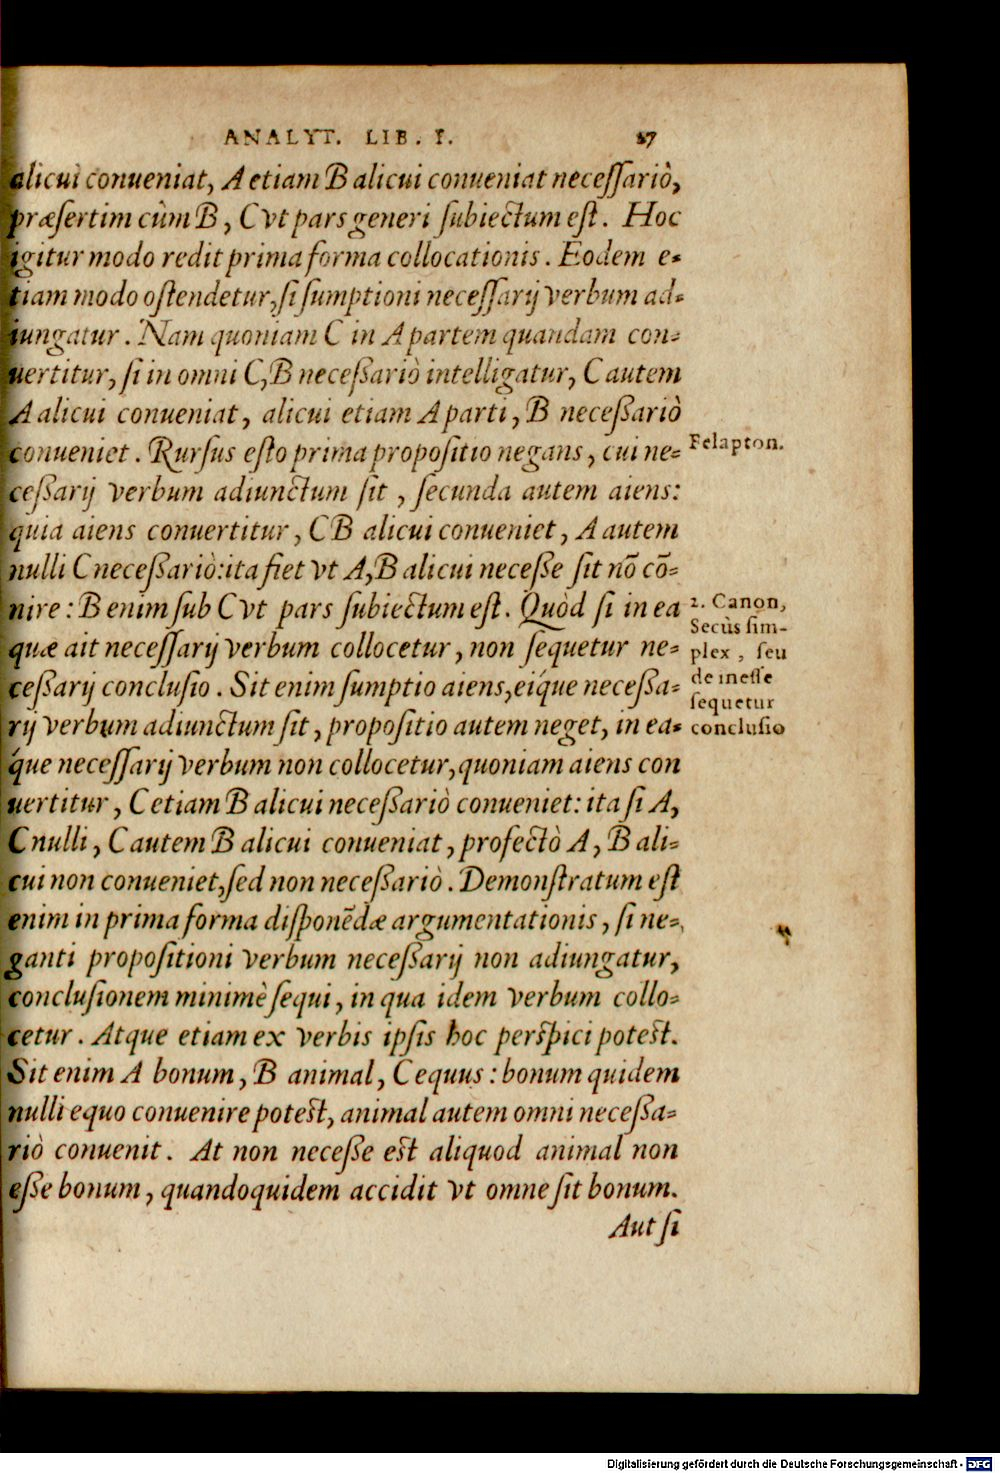 ANALYT. LIB. I. 27
alicui conueniat, A etiam B alicui conueniat neceſſariò,
præſertim cùm B, C vt pars generi ſubiectum eſt. Hoc
igitur modo redit prima forma collocationis. Eodem e-
tiam modo oſtendetur, ſi ſumptioni neceſſarij verbum ad-
iungatur. Nam quoniam C in A partem quandam con-
uertitur, ſi in omni C, B neceßariò intelligatur, C autem
A alicui conueniat, alicui etiam A parti, B neceßariò
conueniet. Rurſus eſto prima propoſitio negans, cui ne-
ceßarij verbum adiunctum ſit, ſecunda autem aiens:
quia aiens conuertitur, C B alicui conueniet, A autem
nulli C neceßariò: ita fiet vt A, B alicui neceße ſit nō cō-
nire: B enim ſub C vt pars ſubiectum eſt. Quòd ſi in ea
quæ ait neceſſarij verbum collocetur, non ſequetur ne-
ceßarij concluſio. Sit enim ſumptio aiens, eíque neceßa-
rij verbum adiunctum ſit, propoſitio autem neget, in ea-
que neceſſarij verbum non collocetur, quoniam aiens con
uertitur, C etiam B alicui neceßariò conueniet: ita ſi A,
C nulli, C autem B alicui conueniat, profectò A, B ali-
cui non conueniet, ſed non neceßariò. Demonſtratum eſt
enim in prima forma diſponēdæ argumentationis, ſi ne-
ganti propoſitioni verbum neceßarij non adiungatur,
concluſionem minimè ſequi, in qua idem verbum collo-
cetur. Atque etiam ex verbis ipſis hoc perſpici poteſt.
Sit enim A bonum, B animal, C equus: bonum quidem
nulli equo conuenire poteſt, animal autem omni neceßa-
riò conuenit. At non neceße eſt aliquod animal non
eße bonum, quandoquidem accidit vt omne ſit bonum.
Aut ſi
Felapton.
2. Canon,
Secùs ſim-
plex, ſeu
de ineſſe
ſequetur
concluſio
Digitalisierung gefördert durch die Deutsche Forschungsgemeinschaft - DFG